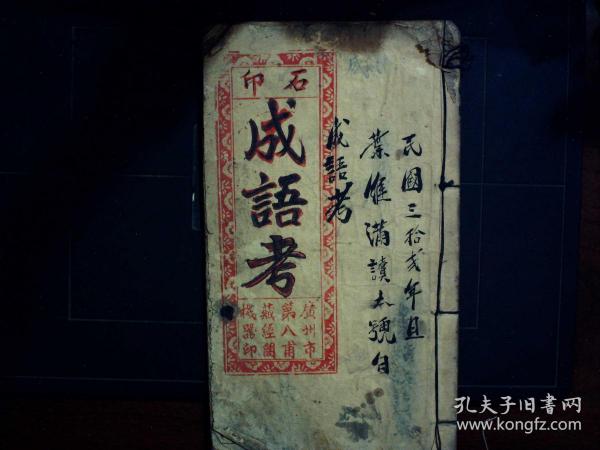 民國三拾弍年日
葉惟滿讀本號自
成語考
石印
成語考
廣州市
第八甫
藏經閣
機器印
孔夫子旧书网
www.kongfz.com